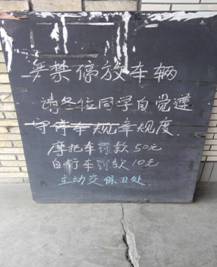 严禁停放车辆
请各位同学自觉遵
守停车规章规度
摩托车罚款50元
自行车罚款10元
主动交保卫处